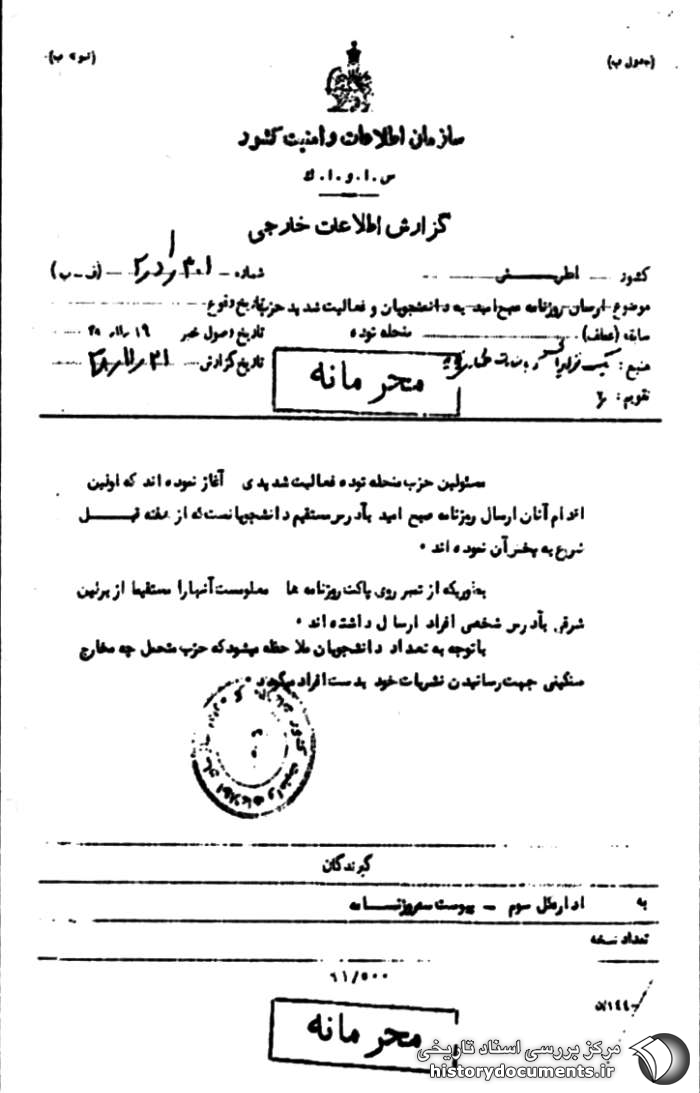 (جدول ب)
(نمونه ب)
سازمان اطلاعات و امنیت کشور
س . ا . و . ا . ك
گزارش اطلاعات خارجی
کشور اطریش
شماره (ف - ب)
موضوع : ارسال روزنامه صبح امید به دانشجویان و فعالیت شدید حزب
تاریخ وقوع
سابقه (عطف) منحله توده
تاریخ وصول خبر ۱۹
منبع :
تاریخ گزارش
تقویم :
محرمانه
مسئولین حزب منحله توده فعالیت شدیدی آغاز نموده اند که اولین
اقدام آنان ارسال روزنامه صبح امید بآدرس مستقیم دانشجویانست که از هفته قبل
شروع به پخش آن نموده اند .
بطوریکه از تمبر روی پاکت روزنامه ها معلومست آنها را مستقیما از برلین
شرقی بآدرس شخصی افراد ارسال داشته اند .
با توجه به تعداد دانشجویان ملاحظه میشود که حزب متحمل چه مخارج
سنگینی جهت رسانیدن نشریات خود بدست افراد میگردد .
گیرندگان
به اداره کل سوم - پیوست
تعداد نسخه
۶۱/۵۰۰
محرمانه
مرکز بررسی اسناد تاریخی
historydocuments.ir